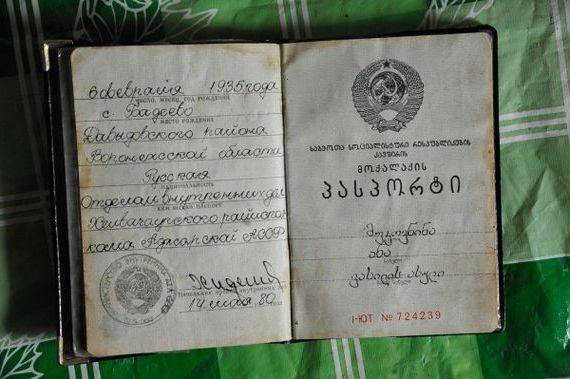 6 февраля 1935 года
ЧИСЛО, МЕСЯЦ, ГОД РОЖДЕНИЯ
с. Бадеево
МЕСТО РОЖДЕНИЯ
Давыдовского района
Воронежской области
Русская
НАЦИОНАЛЬНОСТЬ
Отделом внутренних дел
КЕМ ВЫДАН ПАСПОРТ
Хелвачаурского райиспол
кома Аджарской АССР
14 мая 80
ᲡᲐᲑᲭᲝᲗᲐ ᲡᲝᲪᲘᲐᲚᲘᲡᲢᲣᲠᲘ ᲠᲔᲡᲞᲣᲑᲚᲘᲙᲔᲑᲘᲡ
ᲙᲐᲕᲨᲘᲠᲘᲡ
ᲛᲝᲥᲐᲚᲐᲥᲘᲡ
ᲞᲐᲡᲞᲝᲠᲢᲘ
ანა
სახელი
ვასილის ასული
I-ЮТ № 724239